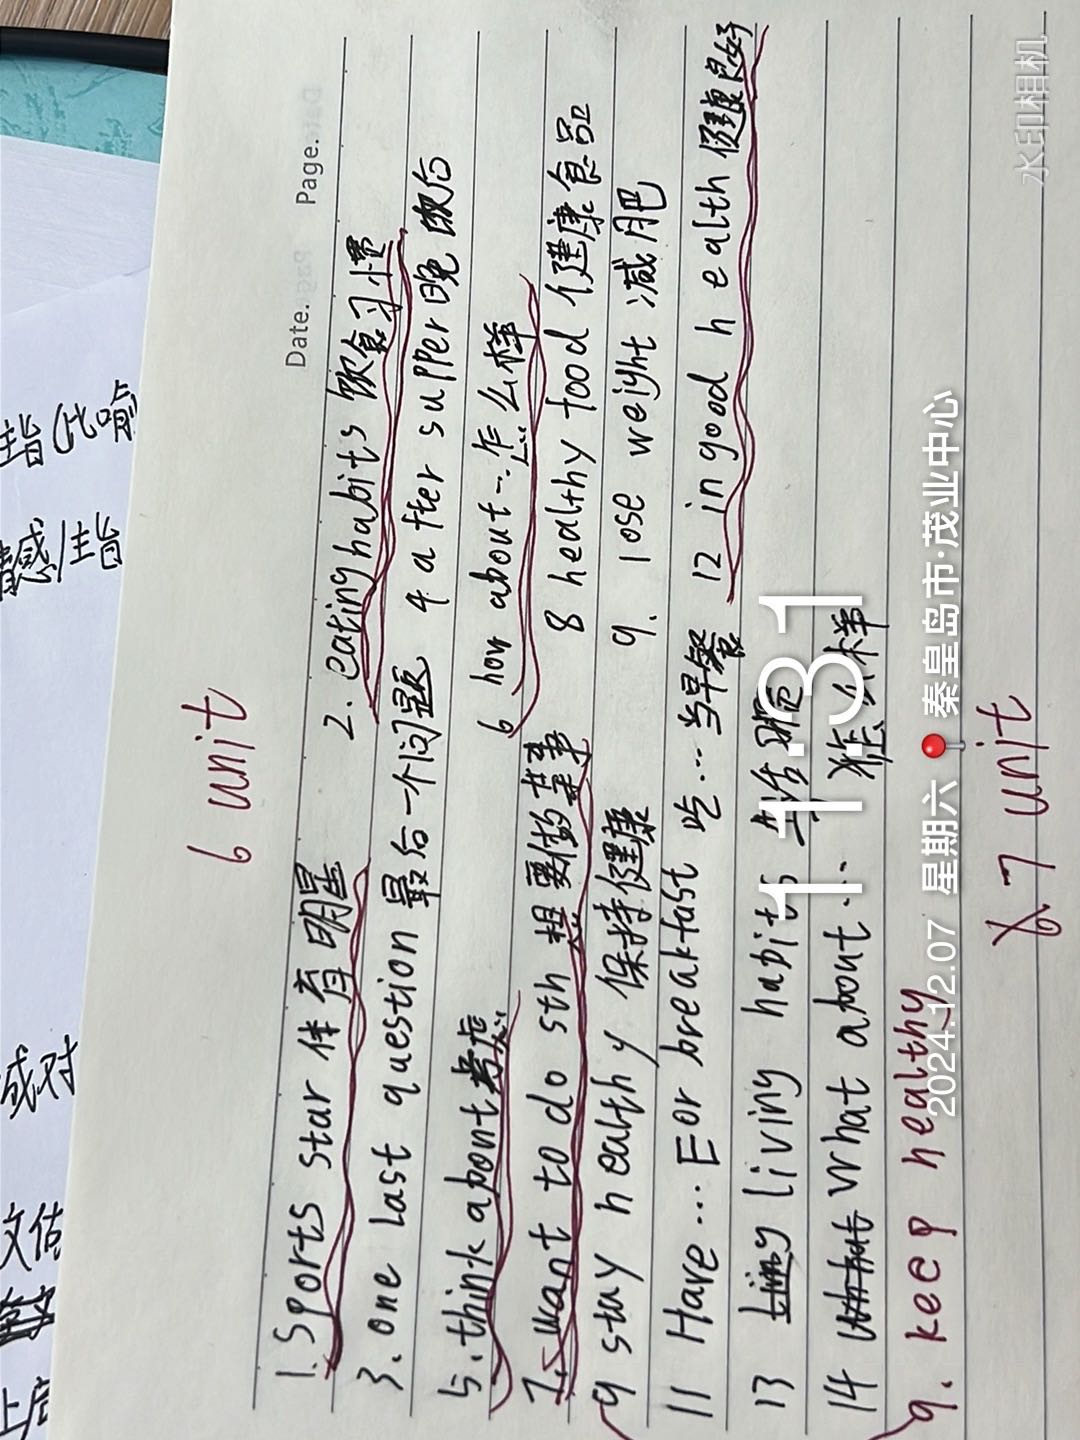 Date. Page.
6 unit
1. Sports star 体育明星 2. eating habits 饮食习惯
3. one last question 最后一个问题 4 after supper 晚饭后
5. think about 考虑 6 how about... 怎么样
7. want to do sth 想要做某事 8 healthy food 健康食品
9 stay healthy 保持健康 9. lose weight 减肥
11 Have... For breakfast 吃...当早餐 12 in good health 健康良好
13 living habits 生活
14 What about... 怎么样
9. keep healthy
7 unit
主旨(比喻
情感/主旨
减对
文估
上启
11:31
2024.12.07 星期六 秦皇岛市·茂业中心
水印相机